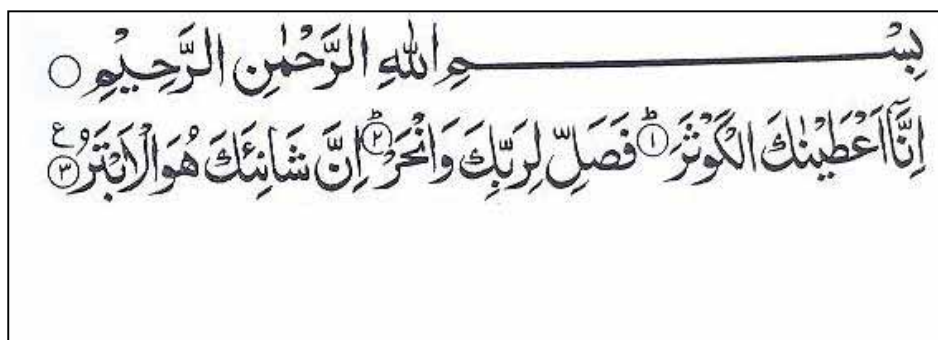 بِسْــــــــــــمِ اللهِ الرَّحْمٰنِ الرَّحِيْمِ ○
اِنَّاۤ اَعْطَيْنٰكَ الْكَوْثَرَ ؕ﴿۱﴾ فَصَلِّ لِرَبِّكَ وَانْحَرْ ؕ﴿۲﴾ اِنَّ شَانِئَكَ هُوَ الْاَبْتَرُ ﴿۳﴾ ع